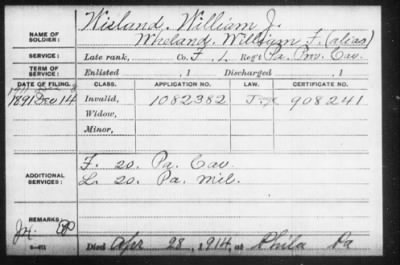 NAME OF SOLDIER: Wieland, William J.
Wheland, William F. (alias)
SERVICE: Late rank, Co. F. L Reg't Pa. Prov. Cav.
TERM OF SERVICE: Enlisted , 1 Discharged , 1
DATE OF FILING. CLASS. APPLICATION NO. LAW. CERTIFICATE NO.
1891 Dec 14 Invalid, 1082382 908241
Widow,
Minor,
ADDITIONAL SERVICES: F. 20. Pa. Cav.
L. 20. Pa. Mil.
REMARKS:
Died Apr 28, 1914, at Phila Pa